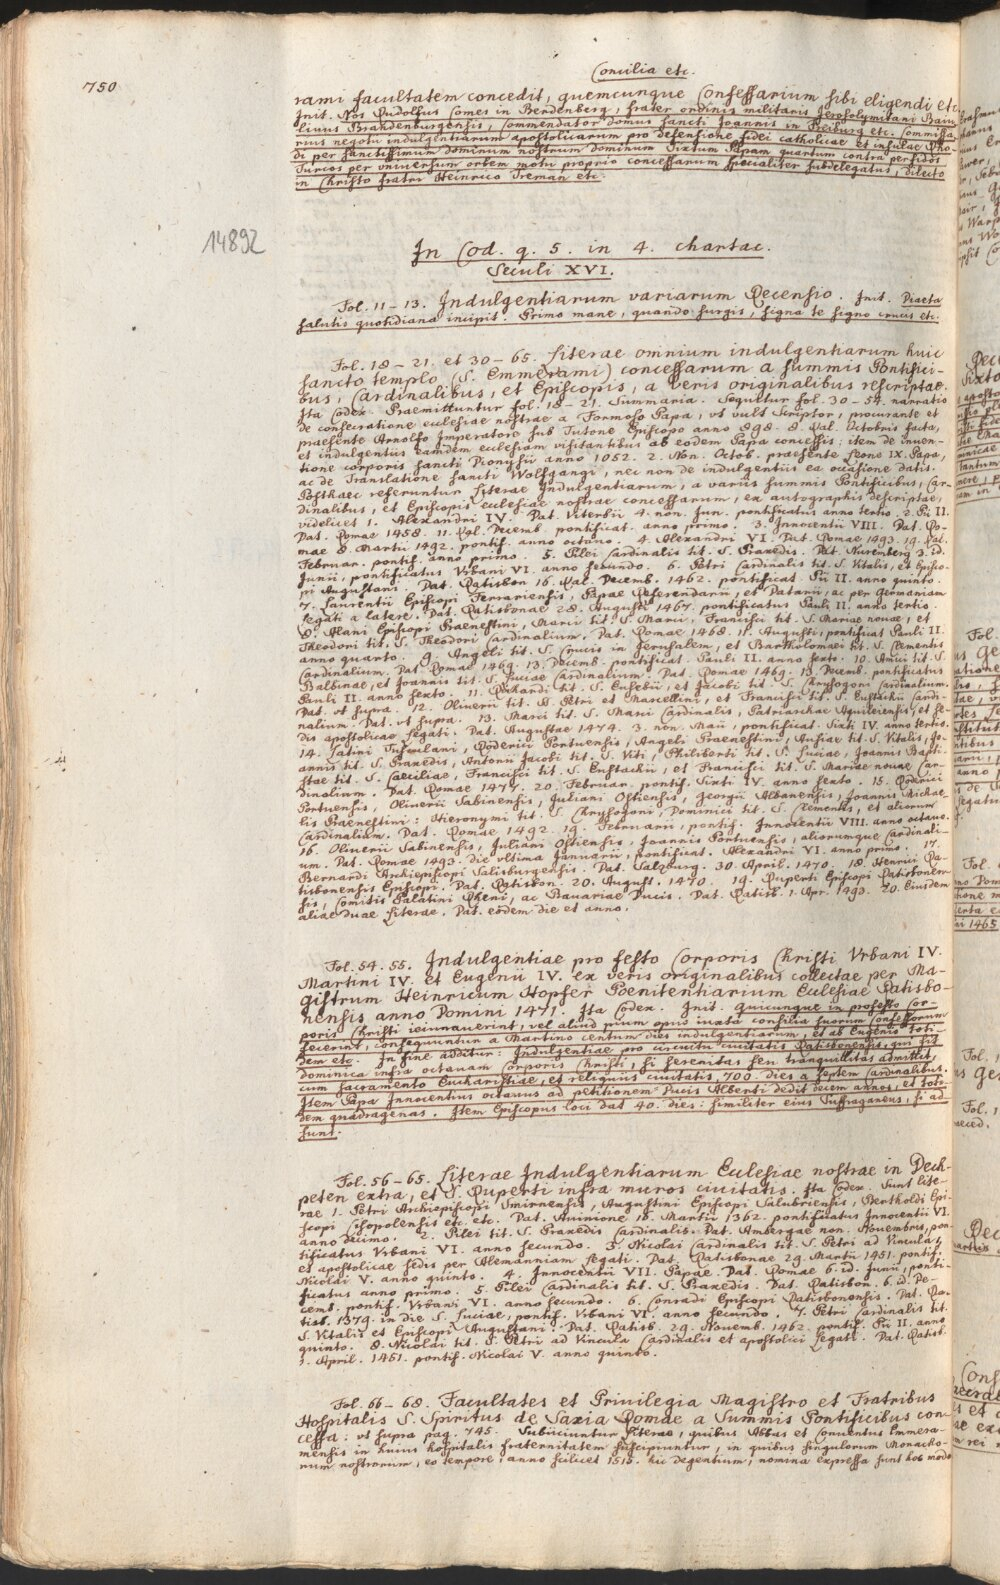 Concilia etc.
750
rami facultatem concedit, quemcunque Confessarium sibi eligendi etc.
Init. Nos Rudolfus Comes in Werdenberg, frater ordinis militaris Jerosolymitani Baiu
livus Brandenburgensis, Commendator domus sancti Joannis in Freiburg etc. Commissa
rius negotii indulgentiarum apostolicarum pro defensione fidei catholicae et insulae Rho-
di per sanctissimum dominum nostrum dominum Sixtum Papam quartum contra perfidos
Turcos per universum orbem motu proprio concessarum specialiter subdelegatus, dilecto
in Christo fratri Heinrico Treman etc.
14892
In Cod. q. 5. in 4. chartac.
Seculi XVI.
Fol. 11-13. Indulgentiarum variarum Recensio. Init. Diaeta
salutis quotidiana incipit. Primo mane, quando surgis, signa te signo crucis etc.
Fol. 18-21. et 30-65. Literae omnium indulgentiarum huic
sancto templo (S. Emmerami) concessarum a summis Pontifici-
bus, Cardinalibus, et Episcopis, a veris originalibus rescriptae.
Ita Codex. Praemittuntur fol. 18-21. Summaria. Sequitur fol. 30-54. narratio
de consecratione ecclesiae nostrae a Formoso Papa, vt vult Scriptor, procurante et
praesente Arnolfo Imperatore sub Tutone Episcopo anno 898. 8. Kal. Octobris facta,
et indulgentiis eamdem ecclesiam visitantibus ab eodem Papa concessis: item de inuen-
tione corporis sancti Dionysii anno 1052. 2. Non. Octob. praesente Leone IX. Papa,
ac de Translatione sancti Wolfgangi, nec non de indulgentiis ea occasione datis.
Posthaec referuntur Literae Indulgentiarum, a variis summis Pontificibus, Car-
dinalibus, et Episcopis ecclesiae nostrae concessarum, ex autographis descriptae,
videlicet 1. Alexandri IV. Dat. Viterbii 4. non. Jun. pontificatus anno tertio. 2. Pii II.
Dat. Romae 1458. 11. Kal. Decemb. pontificat. anno primo. 3. Innocentii VIII. Dat. Ro-
mae 8. Martii 1492. pontif. anno octavo. 4. Alexandri VI. Dat. Romae 1493. 19. Kal.
Februar. pontif. anno primo. 5. Pilei Cardinalis tit. S. Praxedis. Dat. Nurenberg 3. id.
Junii, pontificatus Vrbani VI. anno secundo. 6. Petri Cardinalis tit. S. Vitalis, et Episco-
pi Augustani. Dat. Ratisbon 16. Kal. Decemb. 1462. pontificat. Pii II. anno quinto.
7. Laurentii Episcopi Ferrariensis, Papae Referendarii, et Datarii, ac per Germaniam
legati a latere. Dat. Ratisbonae 28. August 1467. pontificatus Pauli II. anno tertio.
8. Alani Episcopi Praenestini, Marii tit. S. Marci, Francisci tit. S. Mariae nouae, et
Theodori tit. S. Theodori Cardinalium. Dat. Romae 1468. 11. Augusti, pontificat Pauli II.
anno quarto. 9. Angeli tit. S. Crucis in Jerusalem, et Bartholomaei tit. S. Clementis
Cardinalium. Dat. Romae 1469. 13. Decemb. pontificat. Pauli II. anno sexto. 10. Amici tit. S.
Balbinae, et Joannis tit. S. Luciae Cardinalium. Dat. Romae 1469. 13. Decemb. pontificatus
Pauli II. anno sexto. 11. Richardi tit. S. Eusebii, et Jacobi tit. S. Chrysogoni Cardinalium.
Dat. vt supra. 12. Oliuerii tit. SS. Petri et Marcellini, et Francisci tit. S. Eustachii Cardi-
nalium. Dat. vt supra. 13. Marci tit. S. Marci Cardinalis, Patriarchae Aquileiensis, et Se-
dis apostolicae legati. Dat. Augustae 1474. 3. non. Maii, pontificat. Sixti IV. anno tertio.
14. Latini Tusculani, Roderici Portuensis, Angeli Praenestini, Ausiae tit. S. Vitalis, Jo-
annis tit. S. Praxedis, Antonii Jacobi tit. S. Viti, Philiberti tit. S. Luciae, Joannis Bapti-
stae tit. S. Caeciliae, Francisci tit. S. Eustachii, et Francisci tit. S. Mariae nouae Car-
dinalium. Dat. Romae 1477. 20. Februar. pontif. Sixti IV. anno sexto. 15. Roderici
Portuensis, Oliuerii Sabinensis, Juliani Ostiensis, Georgii Albanensis, Joannis Michae
lis Praenestini: Hieronymi tit. S. Chrysogoni, Dominici tit. S. Clementis, et aliorum
Cardinalium. Dat. Romae 1492. 19. Februarii, pontif. Innocentii VIII. anno octauo.
16. Oliuerii Sabinensis, Juliani Ostiensis, Joannis Portuensis, aliorumque Cardinali-
um. Dat. Romae 1493. die vltima Januarii, pontificat. Alexandri VI. anno primo. 17.
Bernardi Archiepiscopi Salisburgensis. Dat. Salzburg. 30. April. 1470. 18. Henrici Ra-
tisbonensis Episcopi. Dat. Ratisbon. 20. August. 1470. 19. Ruperti Episcopi Ratisbonen-
sis, Comitis Palatini Rheni, ac Bauariae Ducis. Dat. Ratisb. 1. Apr. 1493. 20. Eiusdem
aliae duae Literae. Dat. eodem die et anno.
Fol. 54. 55. Indulgentiae pro festo Corporis Christi Vrbani IV.
Martini IV. et Eugenii IV. ex veris originalibus collectae per Ma-
gistrum Heinricum Hopfer Poenitentiarium Ecclesiae Ratisbo-
nensis anno Domini 1471. Ita Codex. Init. Quicunque in profesto Cor-
poris Christi ieiunauerint, vel aliud pium opus iuxta consilia suorum Confessorum
fecerint, consequuntur a Martino centum dies indulgentiarum, et ab Eugenio toti-
dem etc. In fine additur: Indulgentiae pro circuitu ciuitatis Ratisbonensis, qui fit
dominica infra octauam Corporis Christi, si serenitas seu tranquillitas admittit,
cum sacramento Eucharistiae, et reliquiis ciuitatis 700. dies a septem Cardinalibus.
Item Papa Innocentius octauus ad petitionem Ducis Alberti dedit decem annos, et toti-
dem quadragenas. Item Episcopus loci dat 40. dies: similiter eius Suffraganeus, si ad-
sunt.
Fol. 56-65. Literae Indulgentiarum Ecclesiae nostrae in Dech-
peten extra, et S. Ruperti infra muros ciuitatis. Ita Codex. Sunt lite-
rae 1. Petri Archiepiscopi Smirnensis, Augustini Episcopi Salubriensis, Bertholdi Epi-
scopi Cisopolensis etc. etc. Dat. Auinione 18. Martii 1362. pontificatus Innocentii VI.
anno decimo. 2. Pilei tit. S. Praxedis Cardinalis. Dat. Ambergae non. Nouembris, pon-
tificatus Vrbani VI. anno secundo. 3. Nicolai Cardinalis tit. S. Petri ad Vincula,
et apostolicae sedis per Alemanniam legati. Dat. Ratisbonae 29. Martii 1451. pontif.
Nicolai V. anno quinto. 4. Innocentii VII. Papae. Dat. Romae 6. id. Junii, ponti-
ficatus anno primo. 5. Pilei Cardinalis tit. S. Praxedis. Dat. Ratisbon. 6. id. De-
cemb. pontif. Vrbani VI. anno secundo. 6. Conradi Episcopi Ratisbonensis. Dat. Ra-
tisb. 1379. in die S. Luciae, pontif. Vrbani VI. anno secundo. 7. Petri Cardinalis tit.
S. Vitalis et Episcopi Augustani. Dat. Ratisb. 29. Nouemb. 1462. pontif. Pii II. anno
quinto. 8. Nicolai tit. S. Petri ad Vincula Cardinalis et apostolici legati. Dat. Ratisb.
1. April. 1451. pontif. Nicolai V. anno quinto.
Fol. 66-68. Facultates et Priuilegia Magistro et Fratribus
Hospitalis S. Spiritus de Saxia Romae a Summis Pontificibus con-
cessa: vt supra pag. 745. Subiiciuntur Literae, quibus Abbas et Conuentus Emmera-
mensis in huius hospitalis fraternitatem suscipiuntur, in quibus singulorum Monacho-
rum nostrorum, eo tempore, anno scilicet 1515. hic degentium, nomina expressa sunt hoc modo